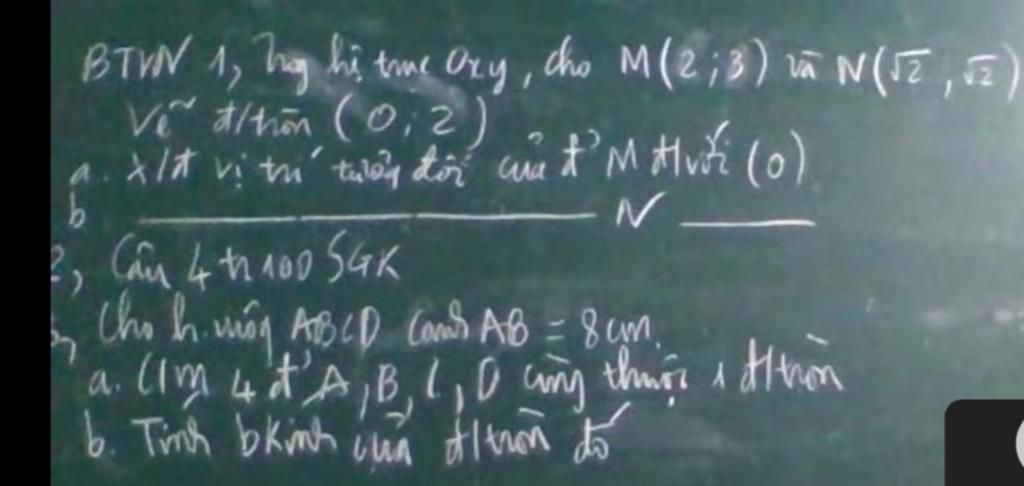 BTVN 1, Trg hệ trục Oxy, cho M(2;3) và N(√2, √2)
Vẽ đ/tròn (O; 2)
a. X/đ vị trí tương đối của đ' M đ/với (O)
b ——————— N ———
2, Câu 4 tr 100 SGK
3, Cho h.vuông ABCD cạnh AB = 8cm.
a. C/m 4 đ' A, B, C, D cùng thuộc 1 đ/tròn
b. Tính bkính của đ/tròn đó